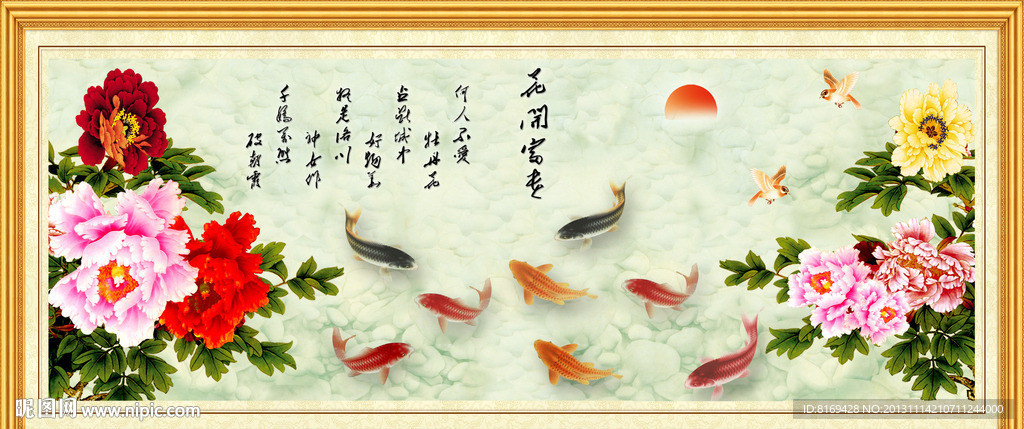 花開富贵
何人不愛
牡丹花
占斷城中
好物華
疑是洛川
神女作
千嬌萬態
破朝霞
昵图网 www.nipic.com
ID:8169428 NO:20131114210711244000